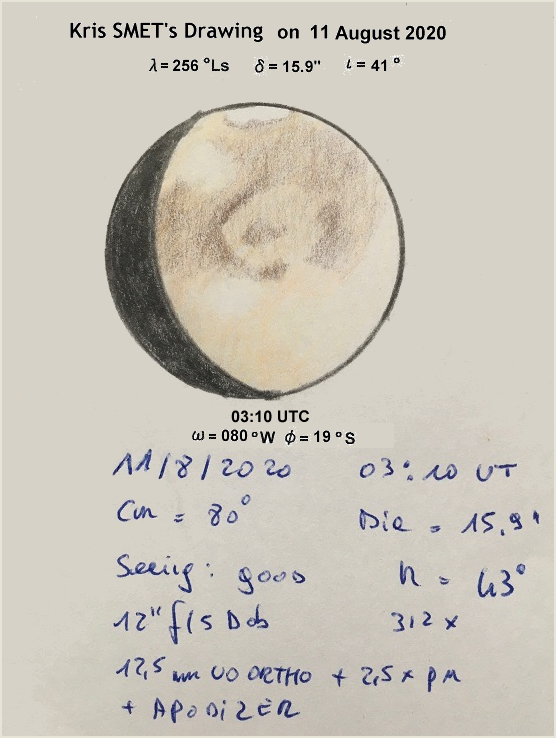 Kris SMET's Drawing on 11 August 2020
λ = 256 °Ls δ = 15.9" ι = 41 °
03:10 UTC
ω = 080 °W ϕ = 19 °S
11/8/2020 03:10 UT
Cm = 80° Dia = 15,9"
Seeing: good h = 43°
12" f/5 Dob 312 x
12,5 mm UO ORTHO + 2,5 x PM
+ APODIZER